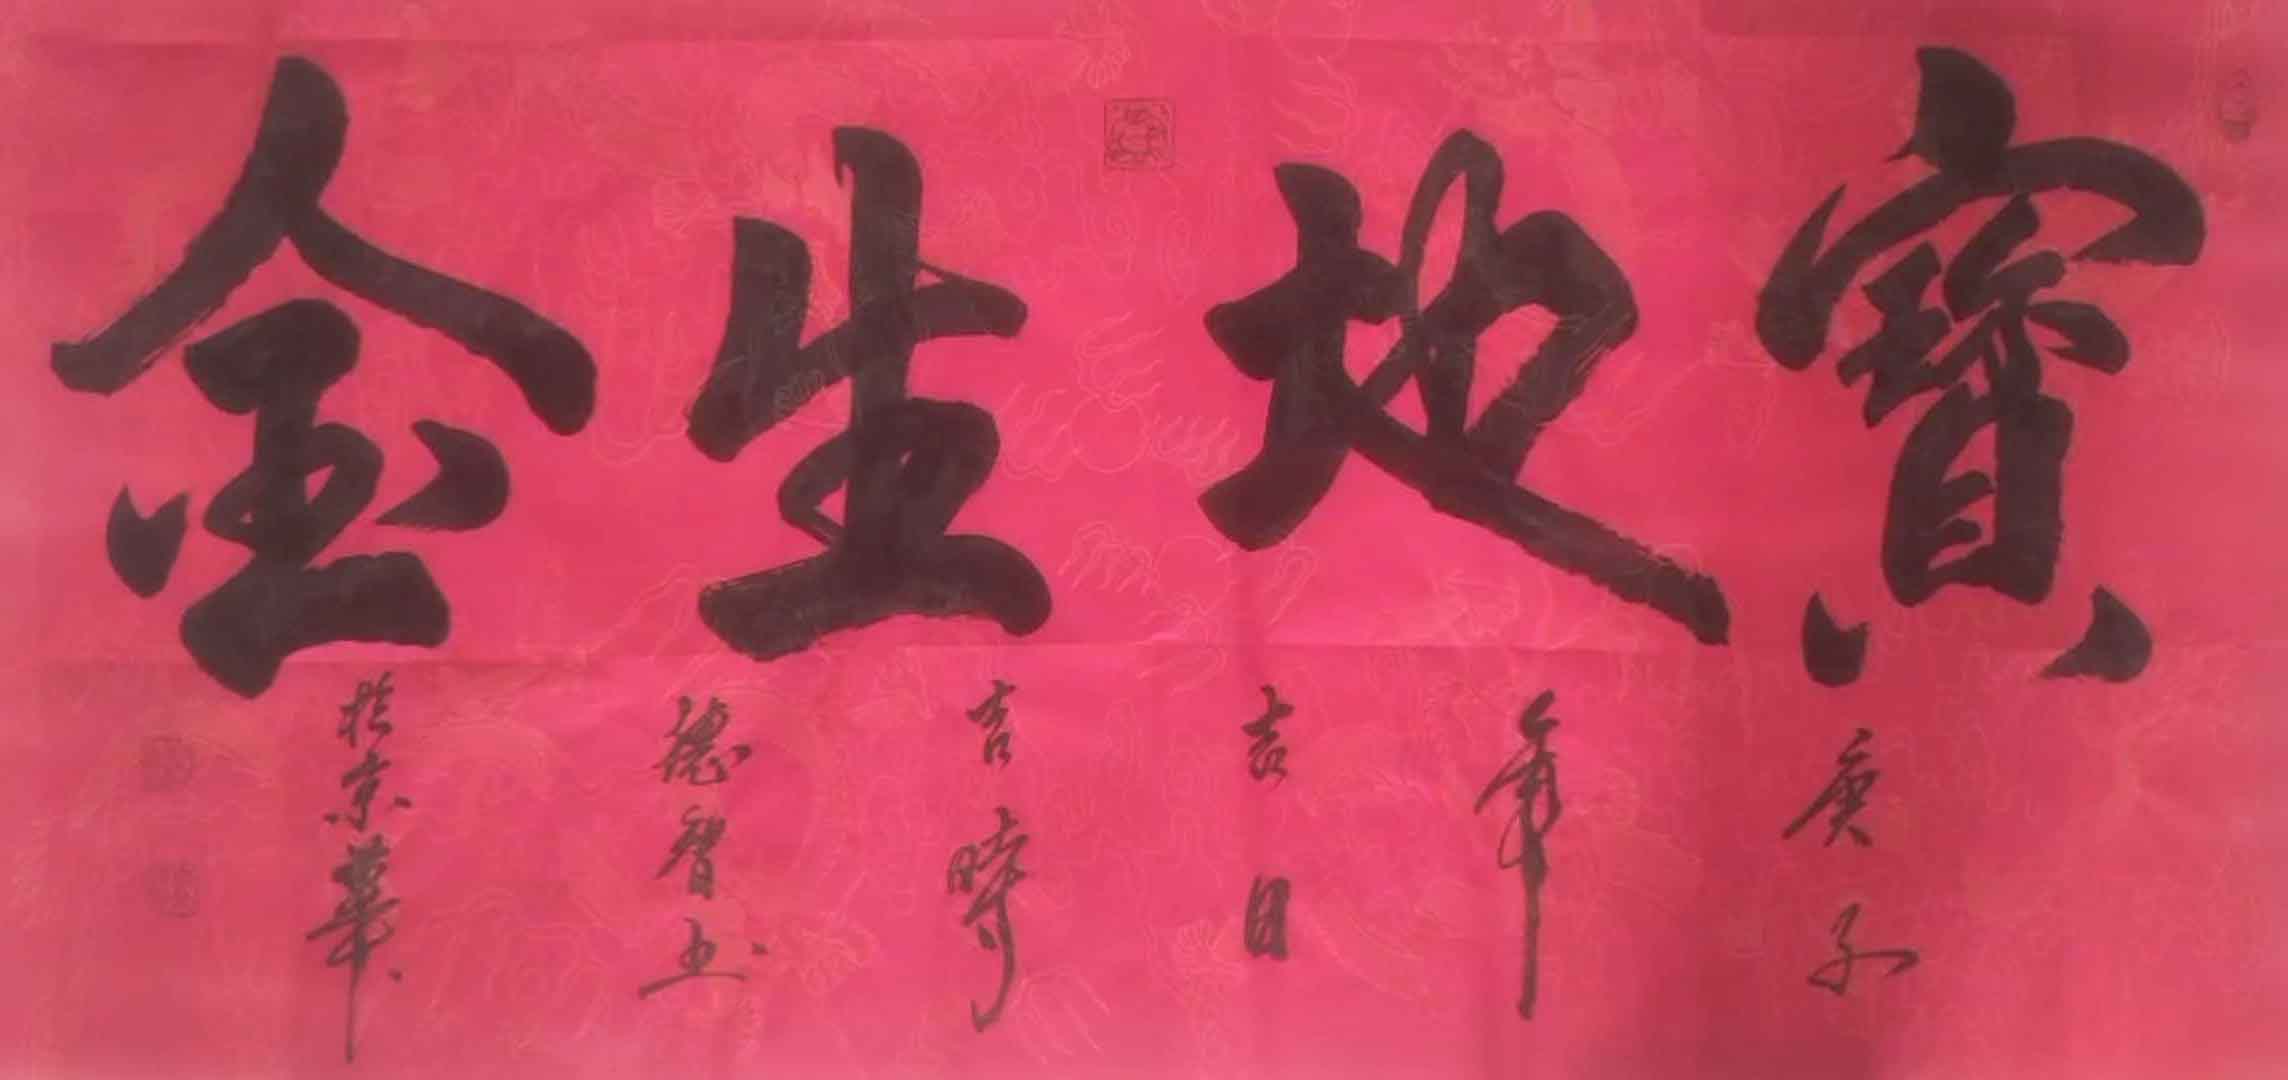 寶地生金
庚子
年
吉日
吉時
德智書
於京華